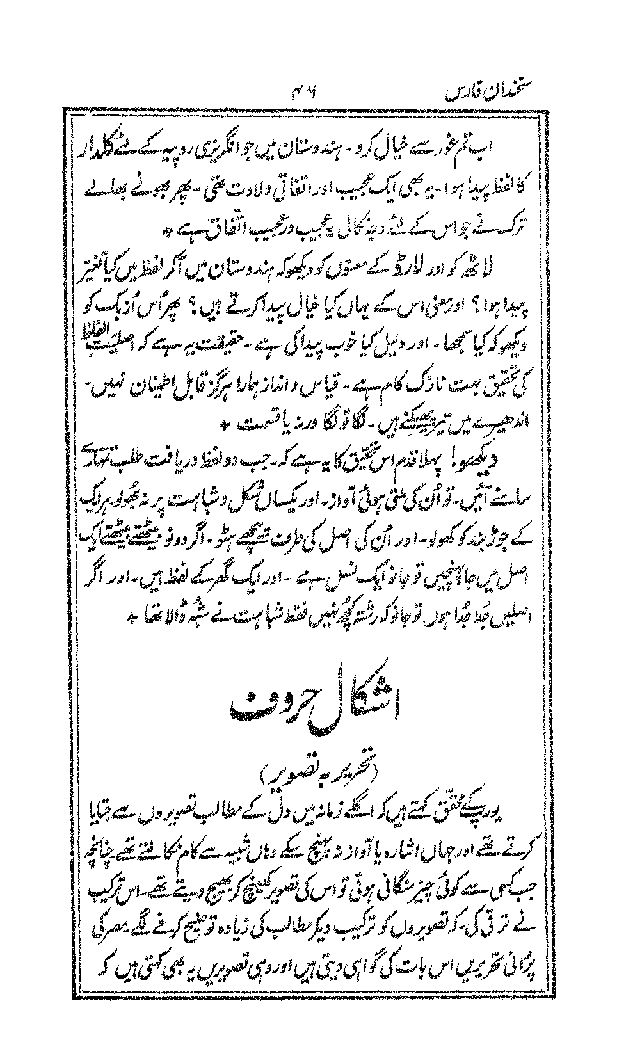 سخندان فارس ۴۶
اب تم غور سے خیال کرو۔ ہندوستان میں جو انگریزی روپیہ کے لئے کلدار
کا لفظ پیدا ہوا۔ یہ بھی ایک عجیب اور اتفاقی ولادت تھی۔ پھر بھولے بھالے
ترک نے جو اس کے لئے دینہ نکالی یہ عجیب در عجیب اتفاق ہے +
لاٹھ کو اور لارڈ کے معنوں کو دیکھو کہ ہندوستان میں آکر لفظ میں کیا تغیر
پیدا ہوا؟ اور معنی اس کے ہاں کیا خیال پیدا کرتے ہیں؟ پھر اُس اُزبک کو
دیکھو کہ کیا سمجھا۔ اور دلیل کیا خوب پیدا کی ہے۔ حقیقت یہ ہے کہ اصلیت الفاظ
کی تحقیق بہت نازک کام ہے۔ قیاس و انداز ہمارا ہرگز قابل اطمینان نہیں۔
اندھیرے میں تیر پھینکتے ہیں۔ لگا تو لگا ورنہ یا قسمت +
دیکھو! پہلا قدم اس تحقیق کا یہ ہے کہ۔ جب دو لفظ دریافت طلب تمہارے
سامنے آئیں۔ تو اُن کی ملتی ہوئی آواز۔ اور یکساں شکل و شباہت پر نہ بھولو ہر ایک
کے جوڑ بند کو کھولو۔ اور اُن کی اصل کی طرف پیچھے ہٹو۔ اگر دونو ہٹتے ہٹتے ایک
اصل میں جا پہنچیں تو جانو ایک نسل ہے۔ اور ایک گھر کے لفظ ہیں۔ اور اگر
اصلیں جُدا جُدا ہوں تو جانو کہ رشتہ کچھ نہیں فقط شباہت نے شبہ ڈالا تھا +
اشکال حروف
(تحریر بہ تصویر)
یورپ کے محقق کہتے ہیں کہ اگلے زمانہ میں دل کے مطالب تصویروں سے جتایا
کرتے تھے اور جہاں اشارہ یا آواز نہ پہنچ سکے وہاں شبیہ سے کام نکالتے تھے چنانچہ
جب کسی سے کوئی چیز منگانی ہوتی تو اس کی تصویر کھینچ کر بھیج دیتے تھے۔ اس ترکیب
نے ترقی کی۔ کہ تصویروں کو ترکیب دیکر مطالب کی زیادہ توضیح کرنے لگے مصر کی
پرانی تحریریں اس بات کی گواہی دیتی ہیں اور وہی تصویریں یہ بھی کہتی ہیں کہ